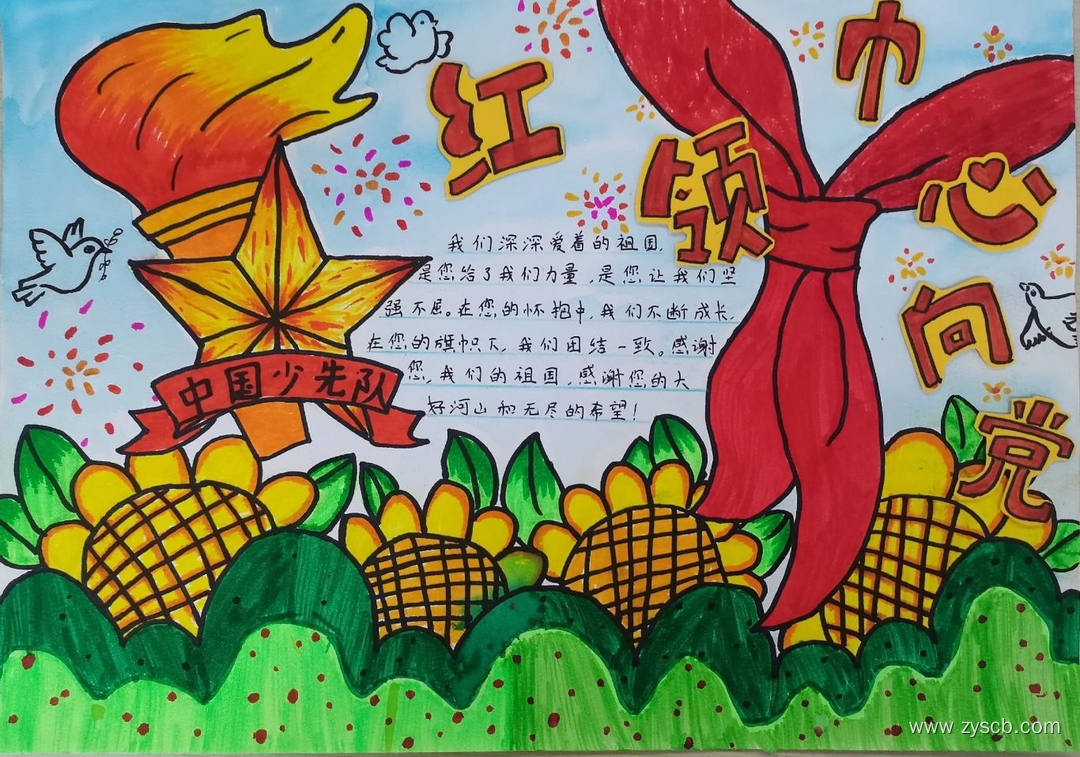 红领巾心向党
我们深深爱着的祖国,
是您给了我们力量,是您让我们坚
强不屈。在您的怀抱中,我们不断成长,
在您的旗帜下,我们团结一致。感谢
您,我们的祖国,感谢您的大
好河山和无尽的希望!
中国少先队
www.zyscb.com